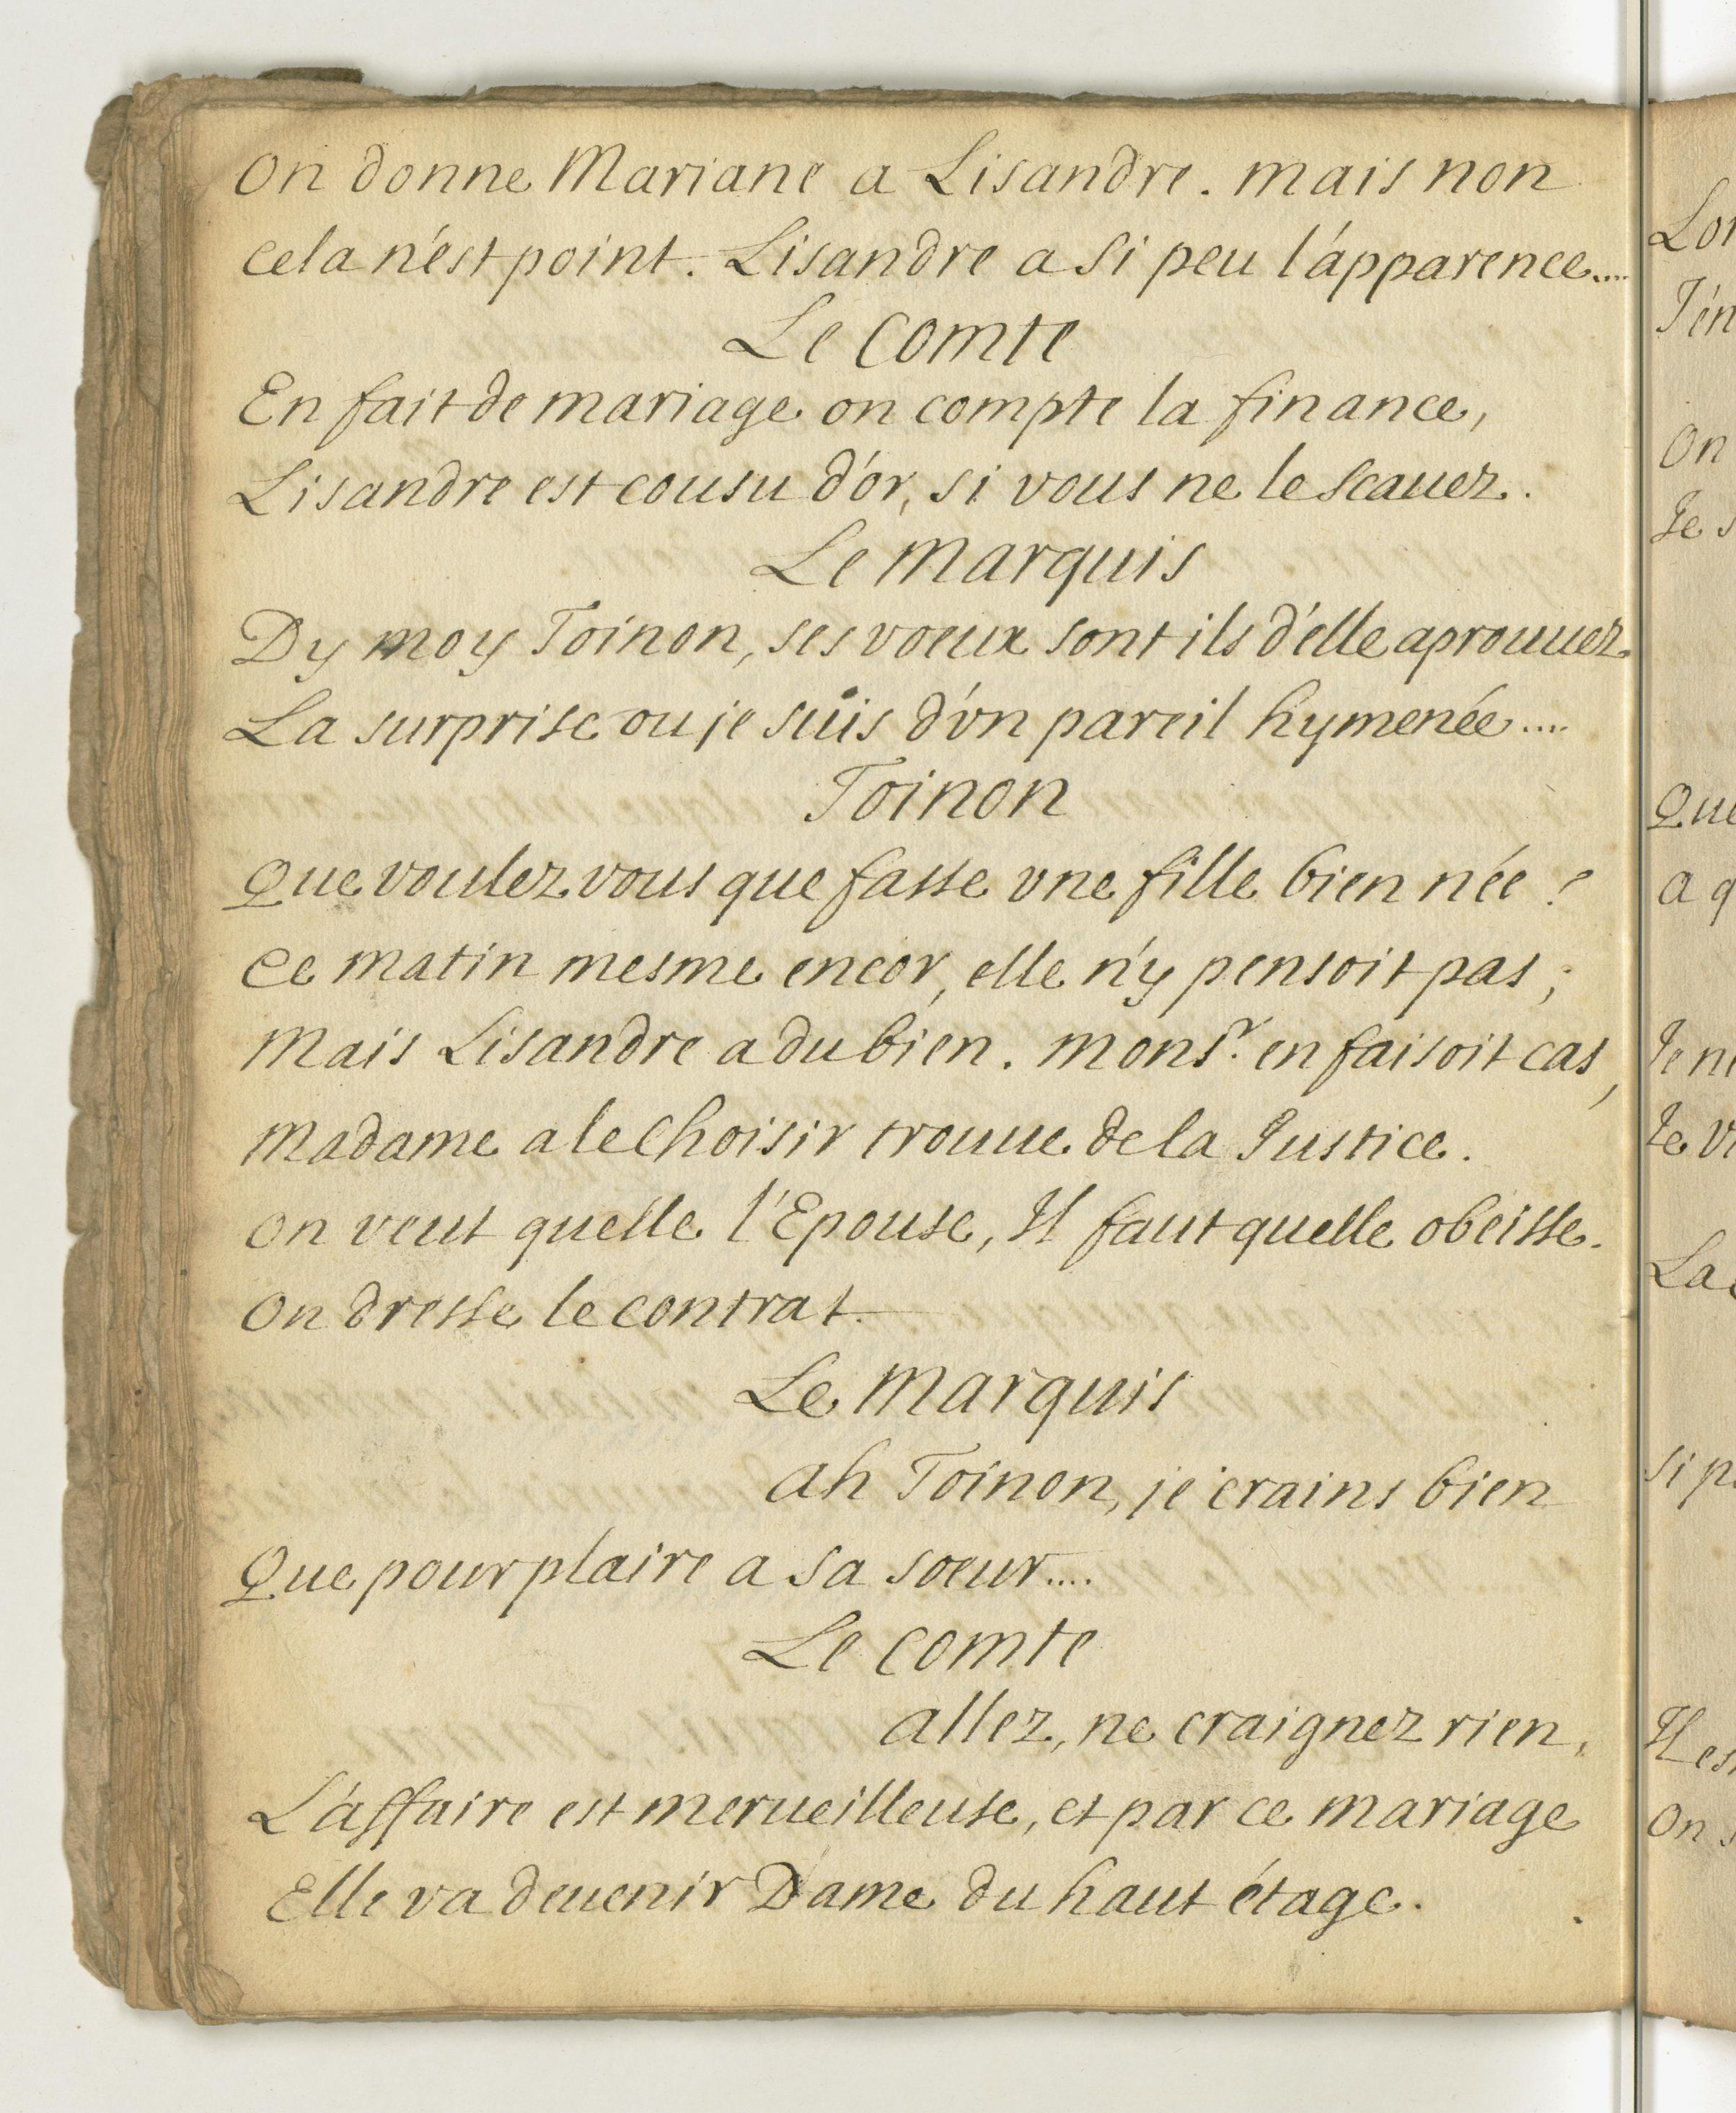 On donne Mariane a Lisandre. mais non
cela n'est point. Lisandre a si peu l'apparence....
Le Comte
En fait de mariage on compte la finance,
Lisandre est cousu d'or, si vous ne le scauez.
Le Marquis
Dy moy Toinon, ses voeux sont ils d'elle aprouuez
La surprise ou je suis d'vn pareil hymenée....
Toinon
Que voulez vous que fasse vne fille bien née ?
Ce matin mesme encor, elle n'y pensoit pas ;
Mais Lisandre a du bien. Monsr. en faisoit cas,
Madame a le choisir trouue de la Justice.
On veut quelle l'Epouse, Il faut quelle obeisse.
On dresse le contrat.
Le Marquis
Ah Toinon, je crains bien
Que pour plaire a sa soeur....
Le Comte
Allez, ne craignez rien,
L'affaire est merueilleuse, et par ce mariage
Elle va deuenir Dame du haut étage.
On
Je
Que
a
La
On